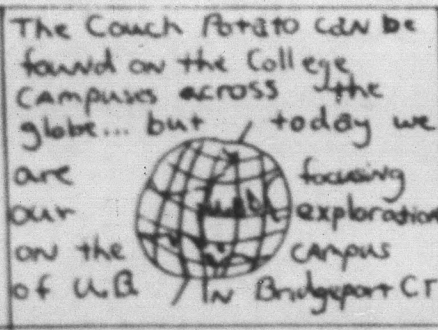 The Couch Potato can be
found on the College
campuses across the
globe... but today we
are focusing
our exploration
on the campus
of U.B. in Bridgeport CT